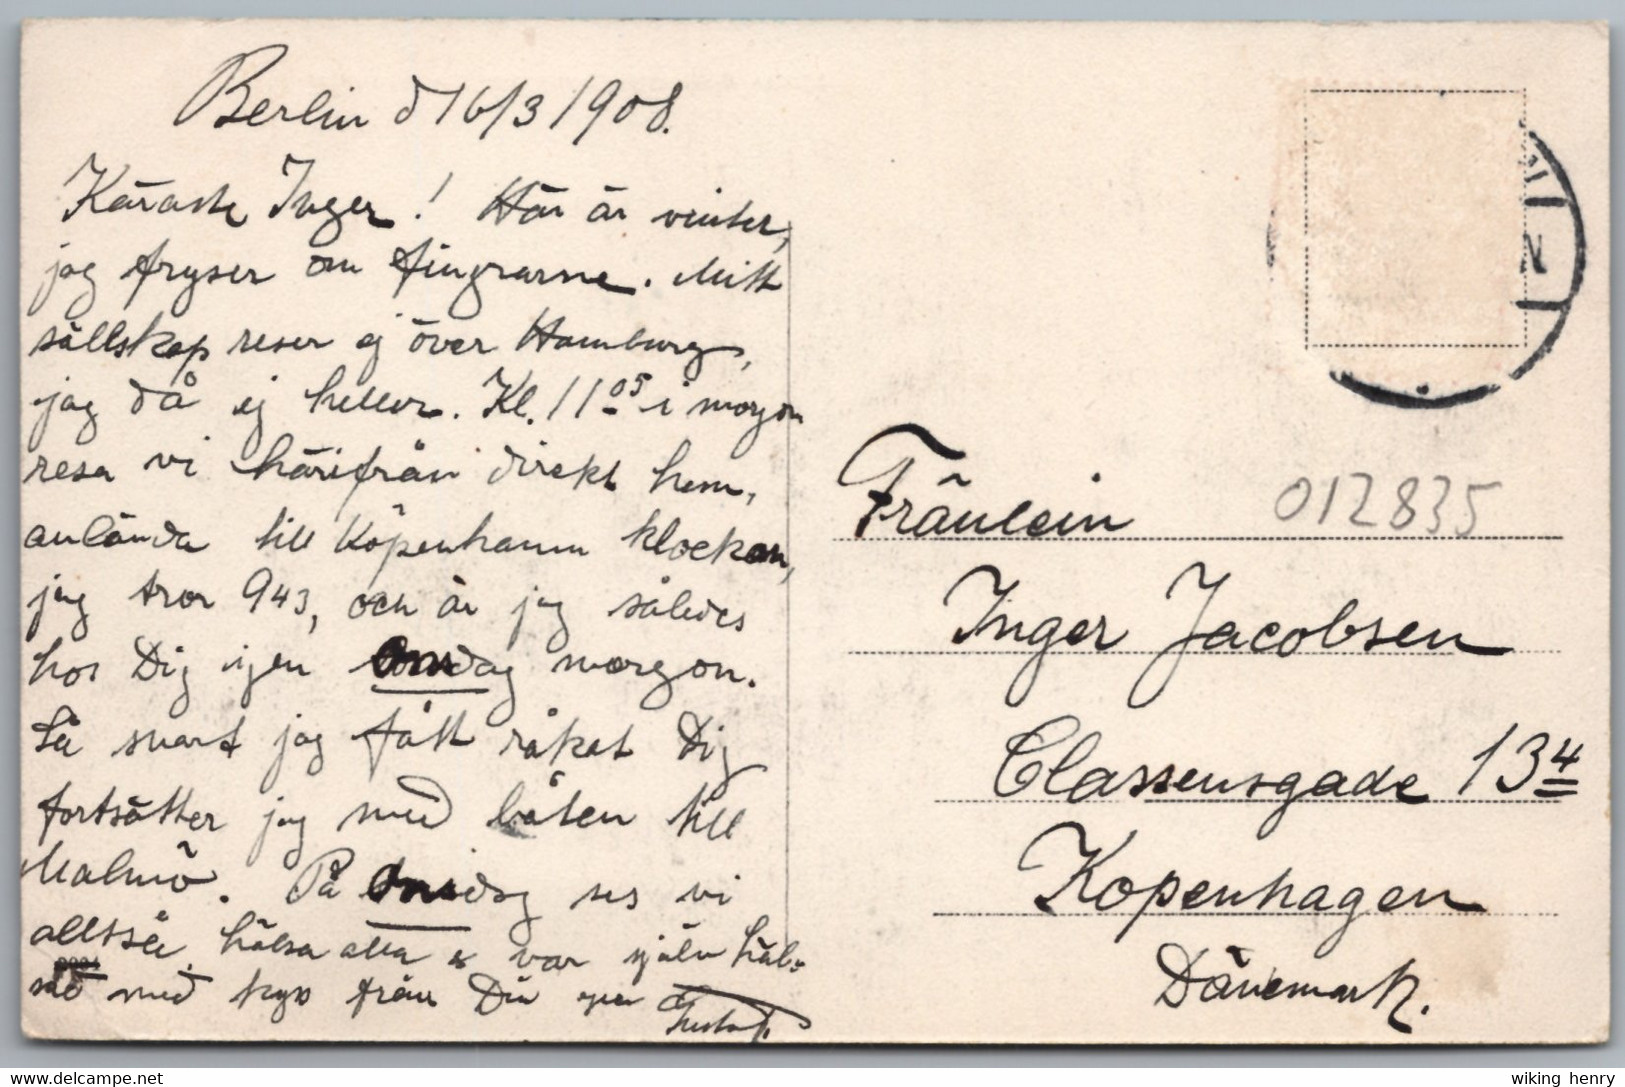 Berlin d 16/3 1908.
Käraste Inger! Här är vinter,
jag fryser om fingrarne. Mitt
sällskap reser ej över Hamburg,
jag då ej heller. Kl. 11 05 i morgon
resa vi härifrån direkt hem,
anlända till Köpenhamn klockan,
jag tror 943, och är jag således
hos Dig igen onsdag morgon.
Så snart jag fått råkat Dig
fortsätter jag med båten till
Malmö. På onsdag ses vi
alltså, hälsa alla & var själv häl-
sad med kyss från Din egen Gustaf.
Fräulein
012835
Inger Jacobsen
Classensgade 13 4
Kopenhagen
Dänemark.
delcampe.net
wiking henry